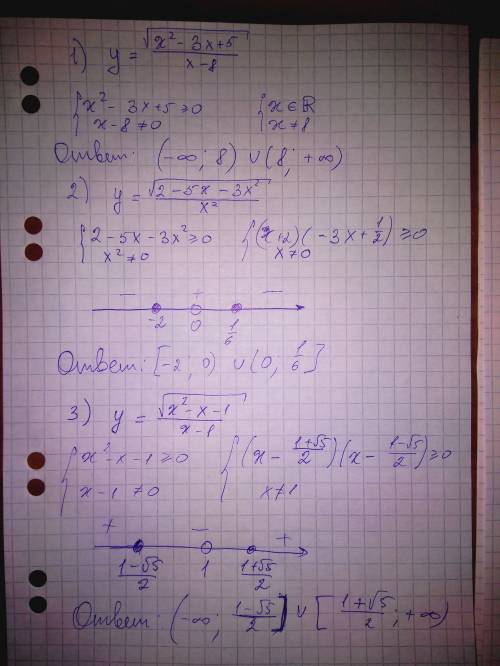 1) y = √(x² - 3x + 5) / (x - 8)
{ x² - 3x + 5 ≥ 0 { x ∈ ℝ
x - 8 ≠ 0 x ≠ 8
Ответ: (-∞; 8) ∪ (8; +∞)
2) y = √(2 - 5x - 3x²) / x²
{ 2 - 5x - 3x² ≥ 0 { (x + 2)(-3x + 1/2) ≥ 0
x² ≠ 0 x ≠ 0
- + -
-2 0 1/6
Ответ: [-2; 0) ∪ (0, 1/6]
3) y = √(x² - x - 1) / (x - 1)
{ x² - x - 1 ≥ 0 { (x - (1+√5)/2)(x - (1-√5)/2) ≥ 0
x - 1 ≠ 0 x ≠ 1
+ - +
(1-√5)/2 1 (1+√5)/2
Ответ: (-∞; (1-√5)/2] ∪ [(1+√5)/2; +∞)